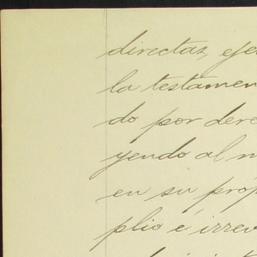 directas, eje
la testamen
do por dere
yendo al m
en su próp
plio é irrev